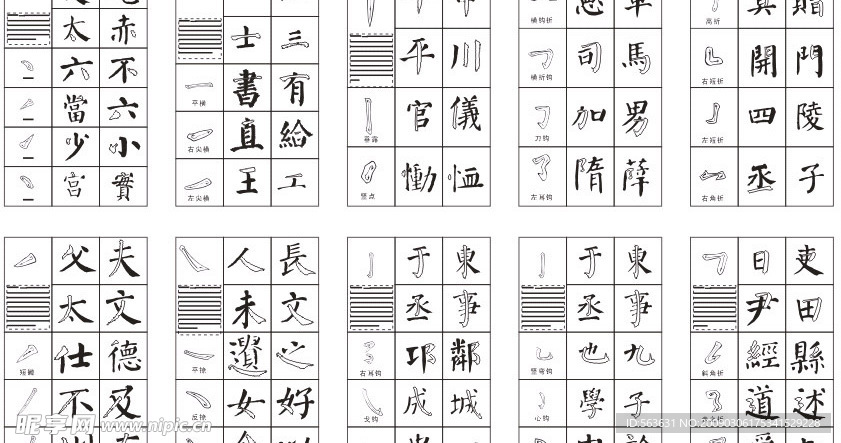 太 赤
六 不
當 六
少 小
宫 實
士 三
平横 書 有
右尖横 直 給
左尖横 王 工
平 川
垂露 官 儀
竖点 慟 恤
横钩折
横折钩 司 馬
刀钩 加 男
左耳钩 隋 薛
高折
右短折 開 門
左短折 四 陵
右角折 丞 子
父 夫
太 文
短撇 仕 德
不 及
人 長
未 文
平捺 遺 之
反捺 女 好
于 東
丞 事
右耳钩 邛 鄰
戈钩 成 城
于 東
丞 事
竖弯钩 也 九
心钩 學 子
日 吏
尹 田
斜角折 經 縣
道 述
昵享网 www.nipic.cn
ID:563631 NO:20090306175341529228